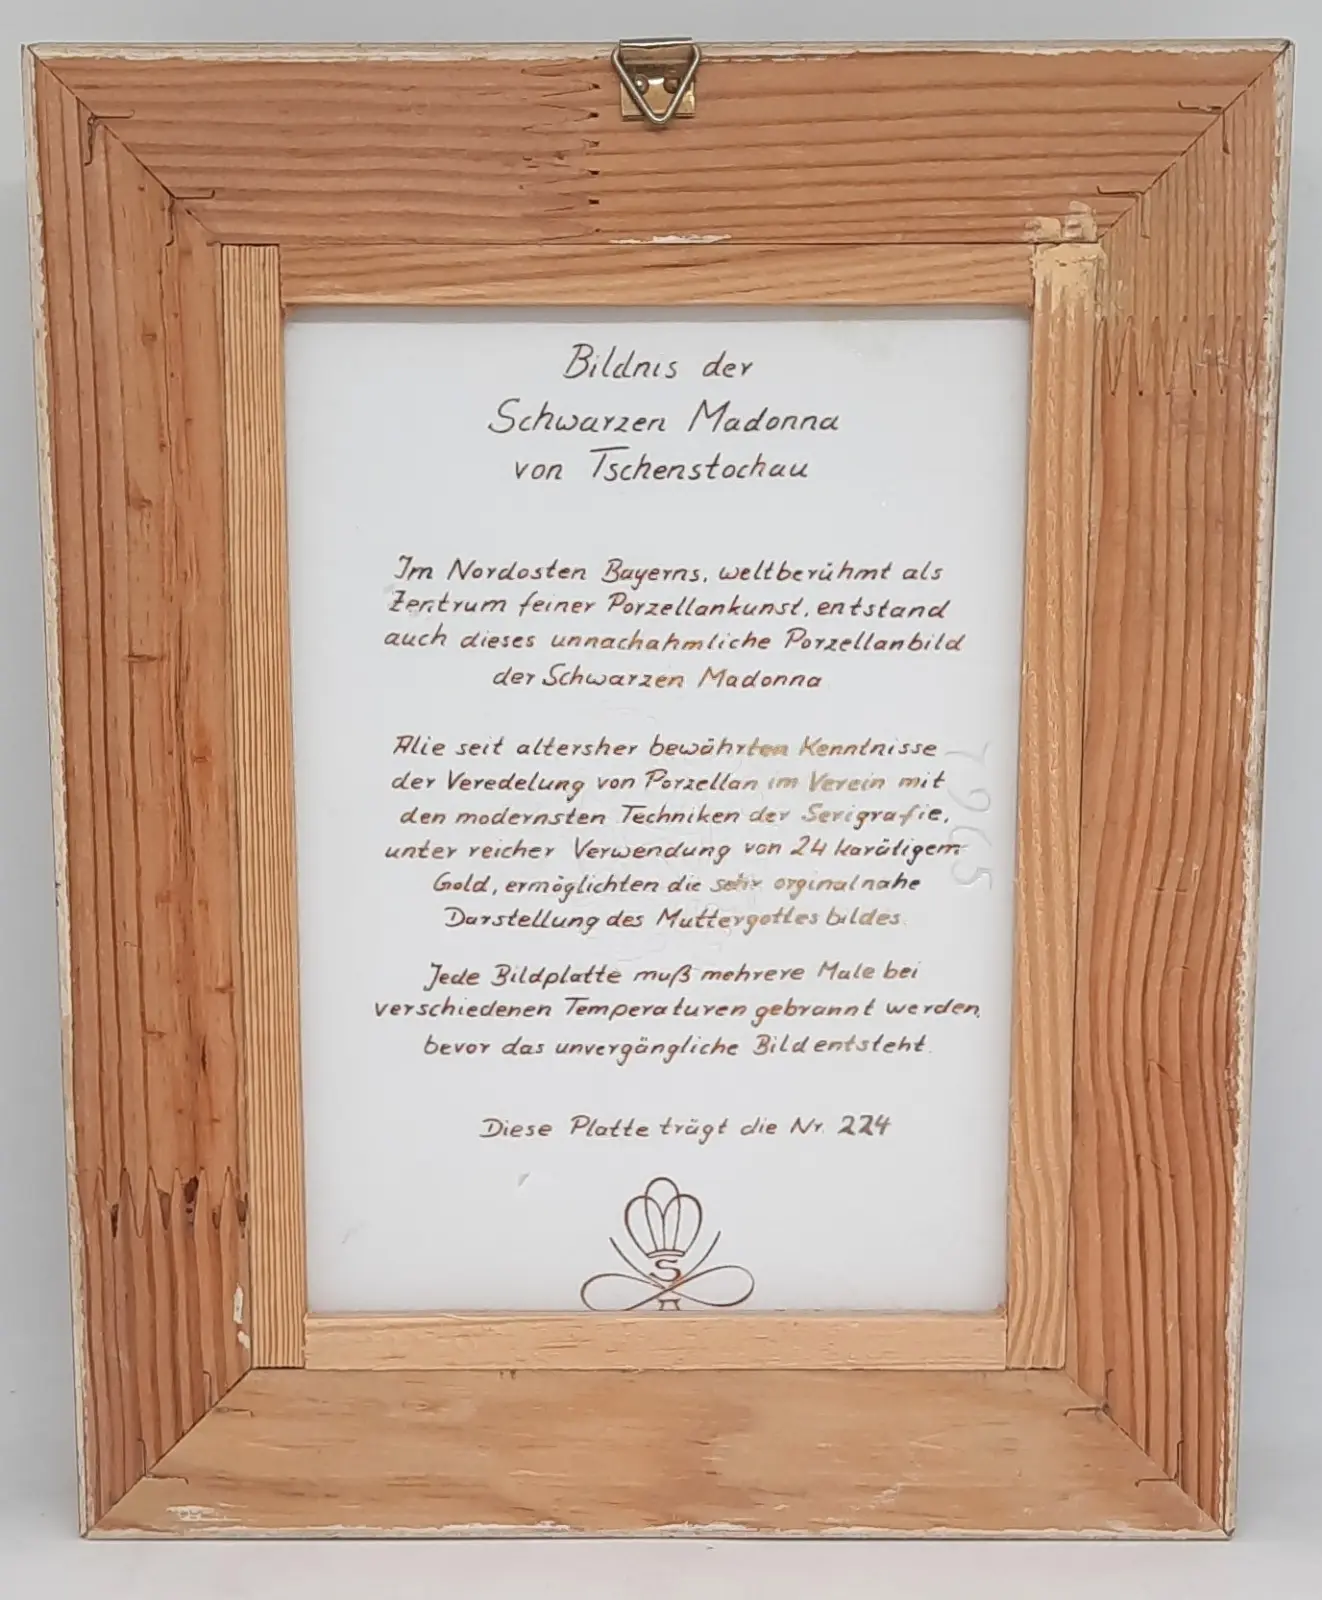 Bildnis der
Schwarzen Madonna
von Tschenstochau
Im Nordosten Bayerns, weltberühmt als
Zentrum feiner Porzellankunst, entstand
auch dieses unnachahmliche Porzellanbild
der Schwarzen Madonna
Alle seit altersher bewährten Kenntnisse
der Veredelung von Porzellan im Verein mit
den modernsten Techniken der Serigrafie,
unter reicher Verwendung von 24 karätigem
Gold, ermöglichten die sehr orginalnahe
Darstellung des Muttergottesbildes.
Jede Bildplatte muß mehrere Male bei
verschiedenen Temperaturen gebrannt werden,
bevor das unvergängliche Bild entsteht.
Diese Platte trägt die Nr. 224
S